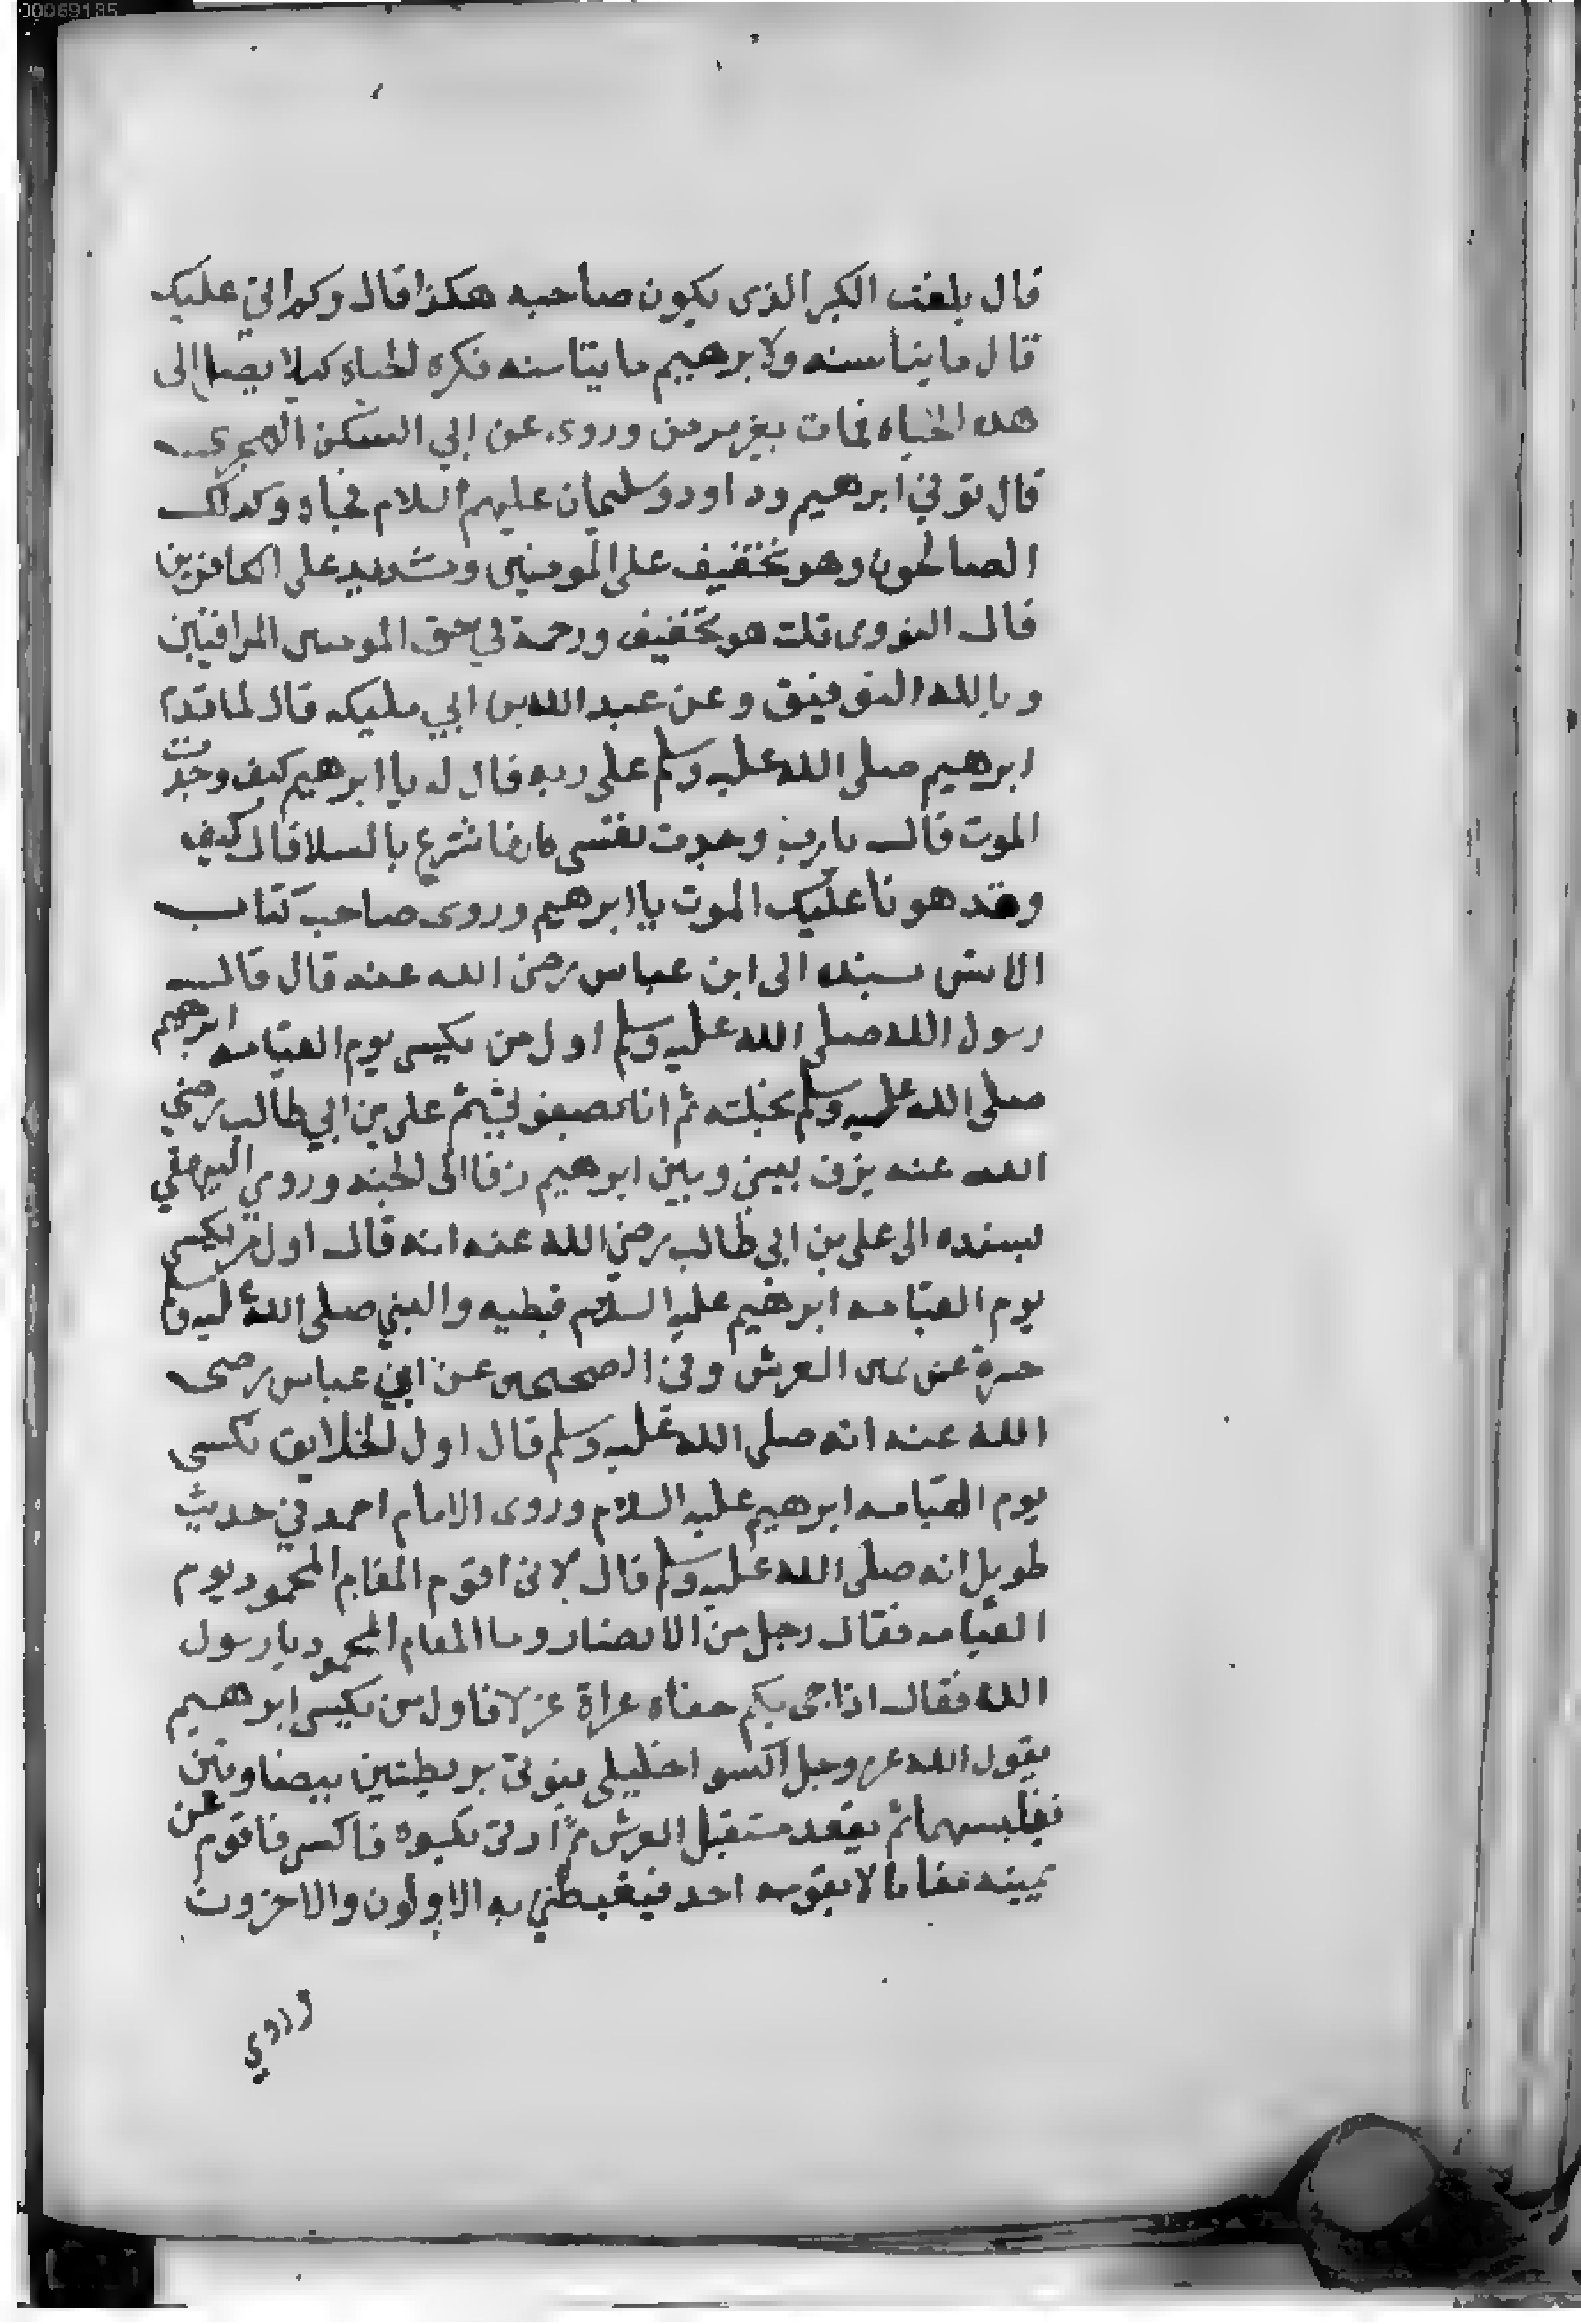 00069135
قال بلغت الكبر الذى يكون صاحبه هكذا قال وكم اتى عليك
قال مايتا سنه ولابرهيم مايتا سنه فكره الحياه كيلا يصل الى
هده الحياه فمات بغير مرض وروى عن ابي السكن الهجرى
قال توفي ابرهيم وداود وسليمان عليهم السلام فجاه وكدلك
الصالحون وهو تخفيف على المومنين وتشديد على الكافرين
قال النووى قلت هو تخفيف ورحمة في حق المومنين المراقبين
وبالله التوفيق وعن عبد الله بن ابي مليكه قال لما قدم
ابرهيم صلى الله عليه وسلم على ربه قال له يا ابرهيم كيف وجدت
الموت قال يا رب وجدت نفسى كانها تنزع بالسلا قال كيف
وقد هونا عليك الموت يا ابرهيم وروى صاحب كتاب
الانس بسنده الى ابن عباس رضى الله عنه قال قال
رسول الله صلى الله عليه وسلم اول من يكسى يوم القيامه ابرهيم
صلى الله عليه وسلم بخلته ثم انا لصفوتي ثم على بن ابي طالب رضي
الله عنه يزف بيني وبين ابرهيم زفا الى الجنه وروي البيهقي
بسنده الى على بن ابي طالب رضي الله عنه انه قال اول من يكسي
يوم القيامه ابرهيم عليه السلام قبطيه والنبي صلى الله عليه وسلم
حبرة عن يمين العرش وفى الصحيحين عن ابن عباس رضى
الله عنه انه صلى الله عليه وسلم قال اول الخلايق يكسى
يوم القيامه ابرهيم عليه السلام وروى الامام احمد في حديث
طويل انه صلى الله عليه وسلم قال لانى اقوم المقام المحمود يوم
القيامه فقال رجل من الانصار وما المقام المحمود يا رسول
الله فقال اذا جى بكم حفاه عراة غرلا فاول من يكسى ابرهيم
يقول الله عز وجل اكسوا خليلى فيوتى بريطتين بيضاوتين
فيلبسهما ثم يقعد مستقبل العرش ثم اوتى بكسوه فاكسى فاقوم عن
يمينه مقاما لا يقومه احد فيغبطني به الاولون والاخرون
وروي